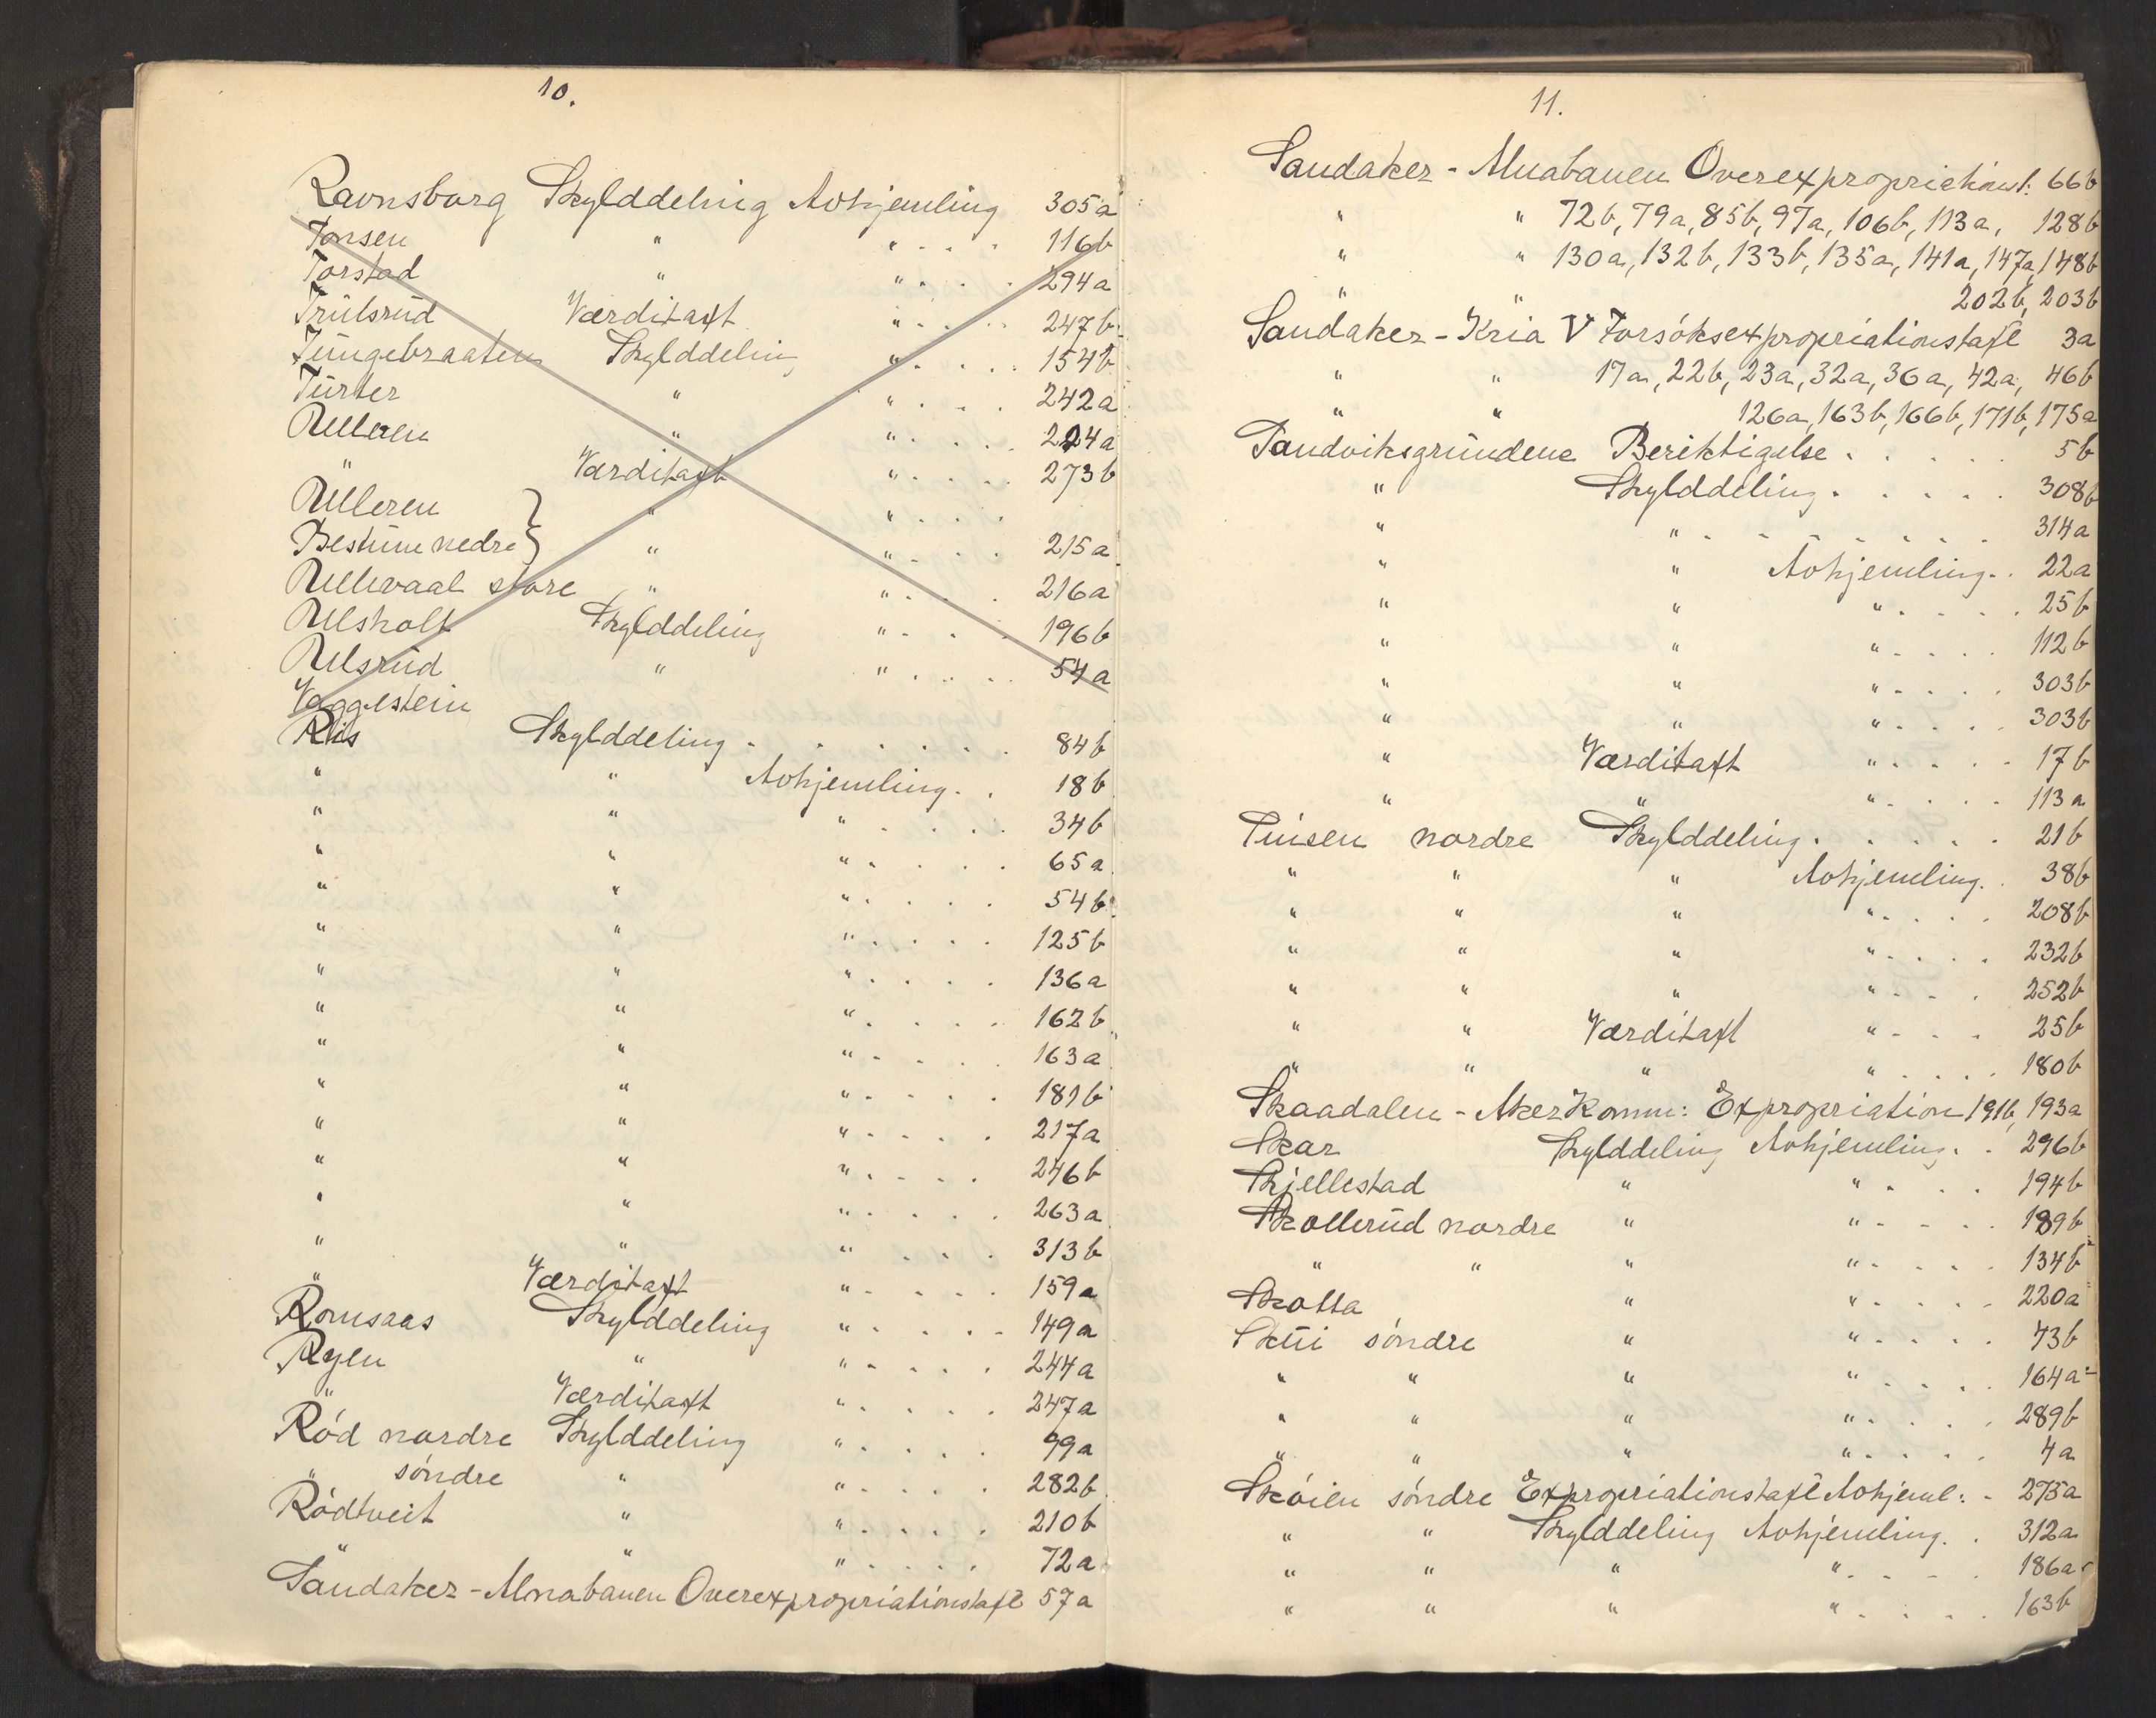 10.
Ravnsborg Skylddeling Avhjemling 305a
Tonsen " " . . . 116b
Torstad " " . . . . 294a
Trulsrud Værditaxt " . . . . 247b
Tungebraaten Skylddelin " . . . . 154b
Turter " " . . . . 242a
Ulleren " " . . . . 224a
" Værditaxt " . . . . 273b
Ulleren } " " . . . .
Bestum nedre } " " . . . . 215a
Ullevaal store " " . . . 216a
Ulsholt Skylddeling " . . . 196b
Ulsrud " " . . . . 54a
Vaggestein
Ris Skylddeling . . . . . . . 84b
" " Avhjemling . . 18b
" " " . . . . . 34b
" " " . . . . . 65a
" " " . . . . . 54b
" " " . . . . . 125b
" " " . . . . . 136a
" " " . . . . . 162b
" " " . . . . . 163a
" " " . . . . . 181b
" " " . . . . . 217a
" " " . . . . . 246b
" " " . . . . . 263a
" " " . . . . 313b
" Værditaxt " . . . . . 159a
Romsaas Skylddeling " . . . . . 149a
Ryen " " . . . . . 244a
" Værditaxt " . . . . . 247a
Röd nordre Skylddeling " . . . . . 99a
" söndre " " . . . . . 282b
Rödtveit " " . . . . . 210b
" " " . . . . . 72a
Sandaker - Alnabanen Overexpropriationstaxt 57a
11.
Sandaker - Alnabanen Overexpropriationst: 66b
" " 72b, 79a, 85b, 97a, 106b, 113a, 128b
" " 130a, 132b, 133b, 135a, 141a, 147a, 148b
" " 202b, 203b
Sandaker - Kria V Forsöksexpropriationstaxt 3a
" " 17a, 22b, 23a, 32a, 36a, 42a, 46b
" " 126a, 163b, 166b, 171b, 175a
Sandviksgrundene Beriktigelse . . . . . 5b
" Skylddeling . . . . . 308b
" " . . . . . . . . 314a
" " Avhjemling . . 22a
" " " . . . . . 25b
" " " . . . . 112b
" " " . . . . . 303b
" " " . . . . 303b
" Værditaxt " . . . . . 17b
" " " . . . . . 113a
Sinsen nordre Skylddeling . . . . . 21b
" " " Avhjemling . . 38b
" " " " . . . . 208b
" " " " . . . . 232b
" " " " . . . . 252b
" " Værditaxt " . . . . 25b
" " " " . . . . . 180b
Skaadalen - Aker Komm: Expropriation 191b, 193a
Skar Skylddeling Avhjemling . . 296b
Skjellestad " " . . . . 194b
Skollerud nordre " " . . . . . 189b
" " " " . . . . . 134b
Skotta " " . . . . . 220a
Skui söndre " " . . . . . 73b
" " " " . . . . . 164a
" " " " . . . . . 289b
" " " " . . . . 4a
Sköien söndre Expropriationstaxt Avhjeml: - 275a
" " Skylddeling Avhjemling . . 312a
" " " " . . . . . 186a
" " " " . . . . . 163b